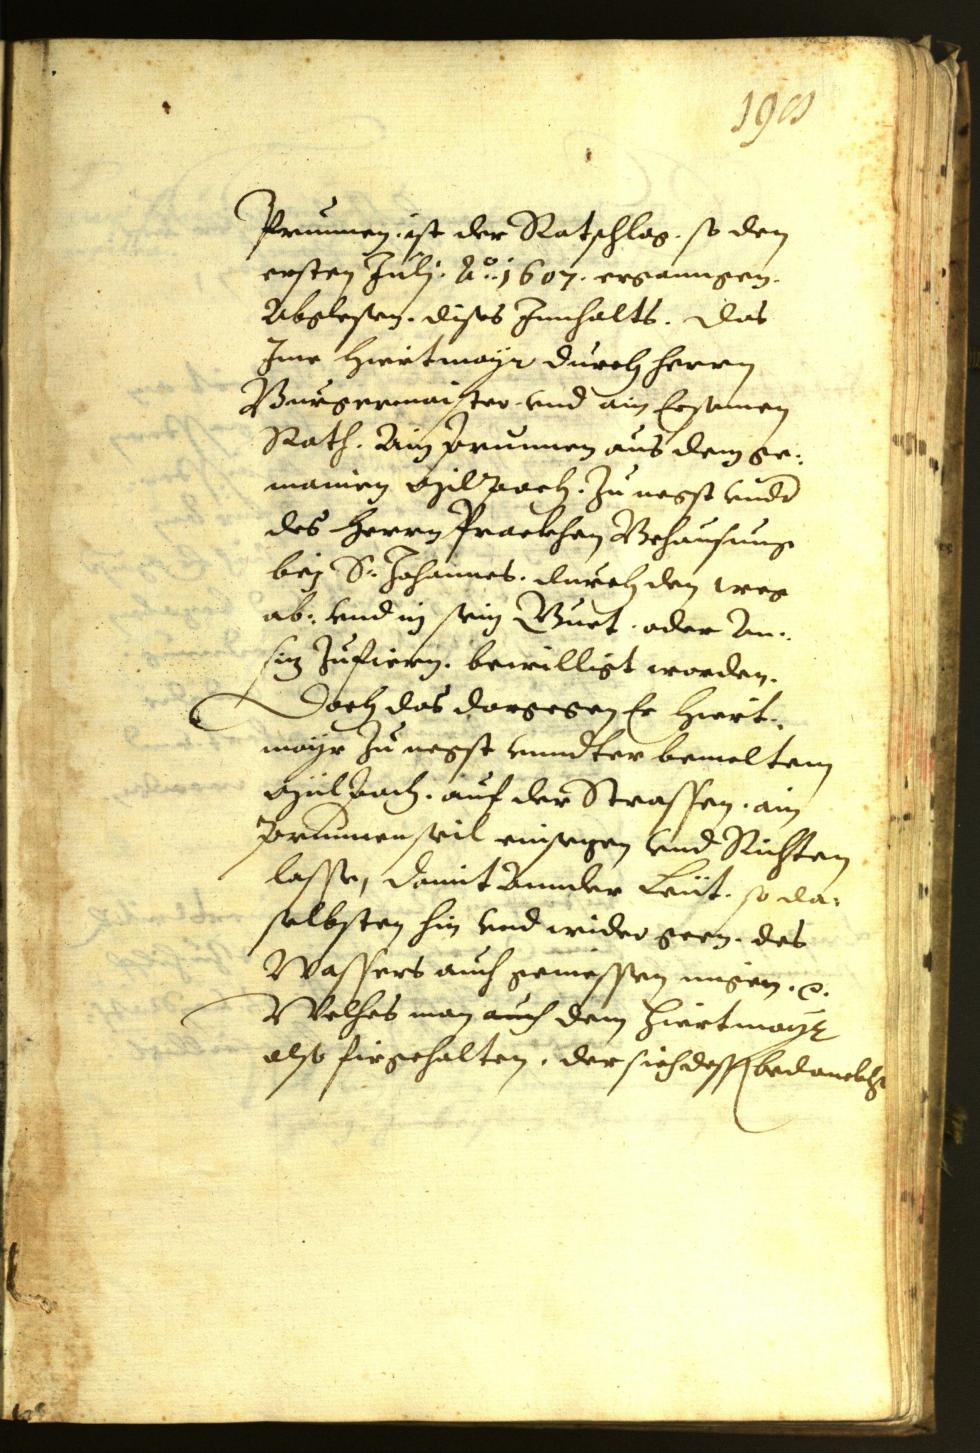 Prunnen. ist der Ratschlag. so den
ersten Julj. Ao. 1607. ergangen.
Abglesen. dises Innhalts. Das
Ime Hiertmayr durch herrn
Burgermaister vnd ain Ersamen
Rath. Ain prunnen aus dem ge:
mainen Milpach. Zu negst vndter
des Herrn Prackhen Behausung
beÿ St. Johannes. durch den weg
ab: vnd in sein Guet. oder An:
siz Zufiern. bewilligt worden.
Doch das dargegen Er Hiert:
mayr Zu negst vnndter bemeltem
Mülpach. auf der Strassen. ain
Prunnenseil einsezen vnd Richten
lasse, damit Annder Leüt. so da:
selbsten hin vnd wider geen. des
Wassers auch geniessen mügen.
Welches man auch dem Hiertmayr
also firgehalten. der sich dess bedanckht